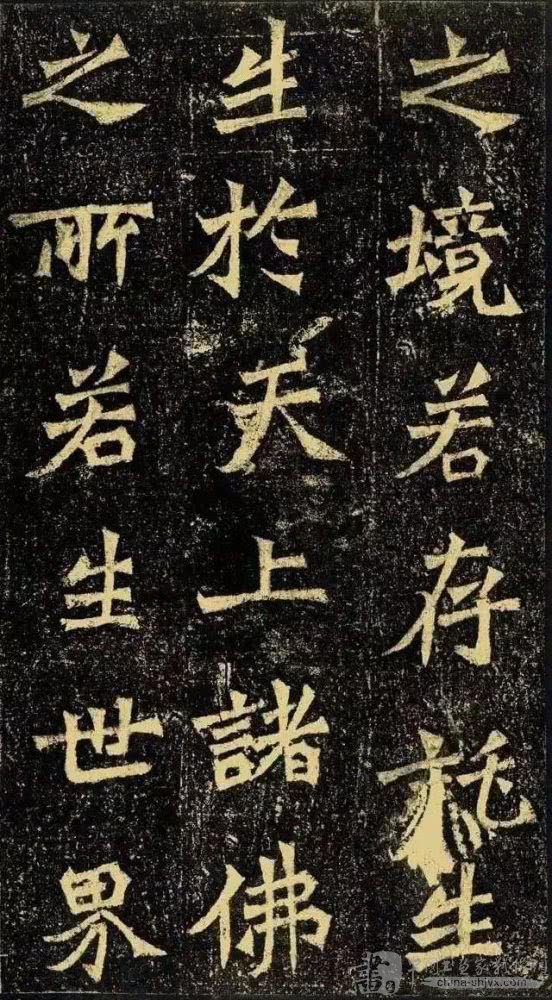 之境若存託生
生於天上諸佛
之所若生世界
china-shjyx.com